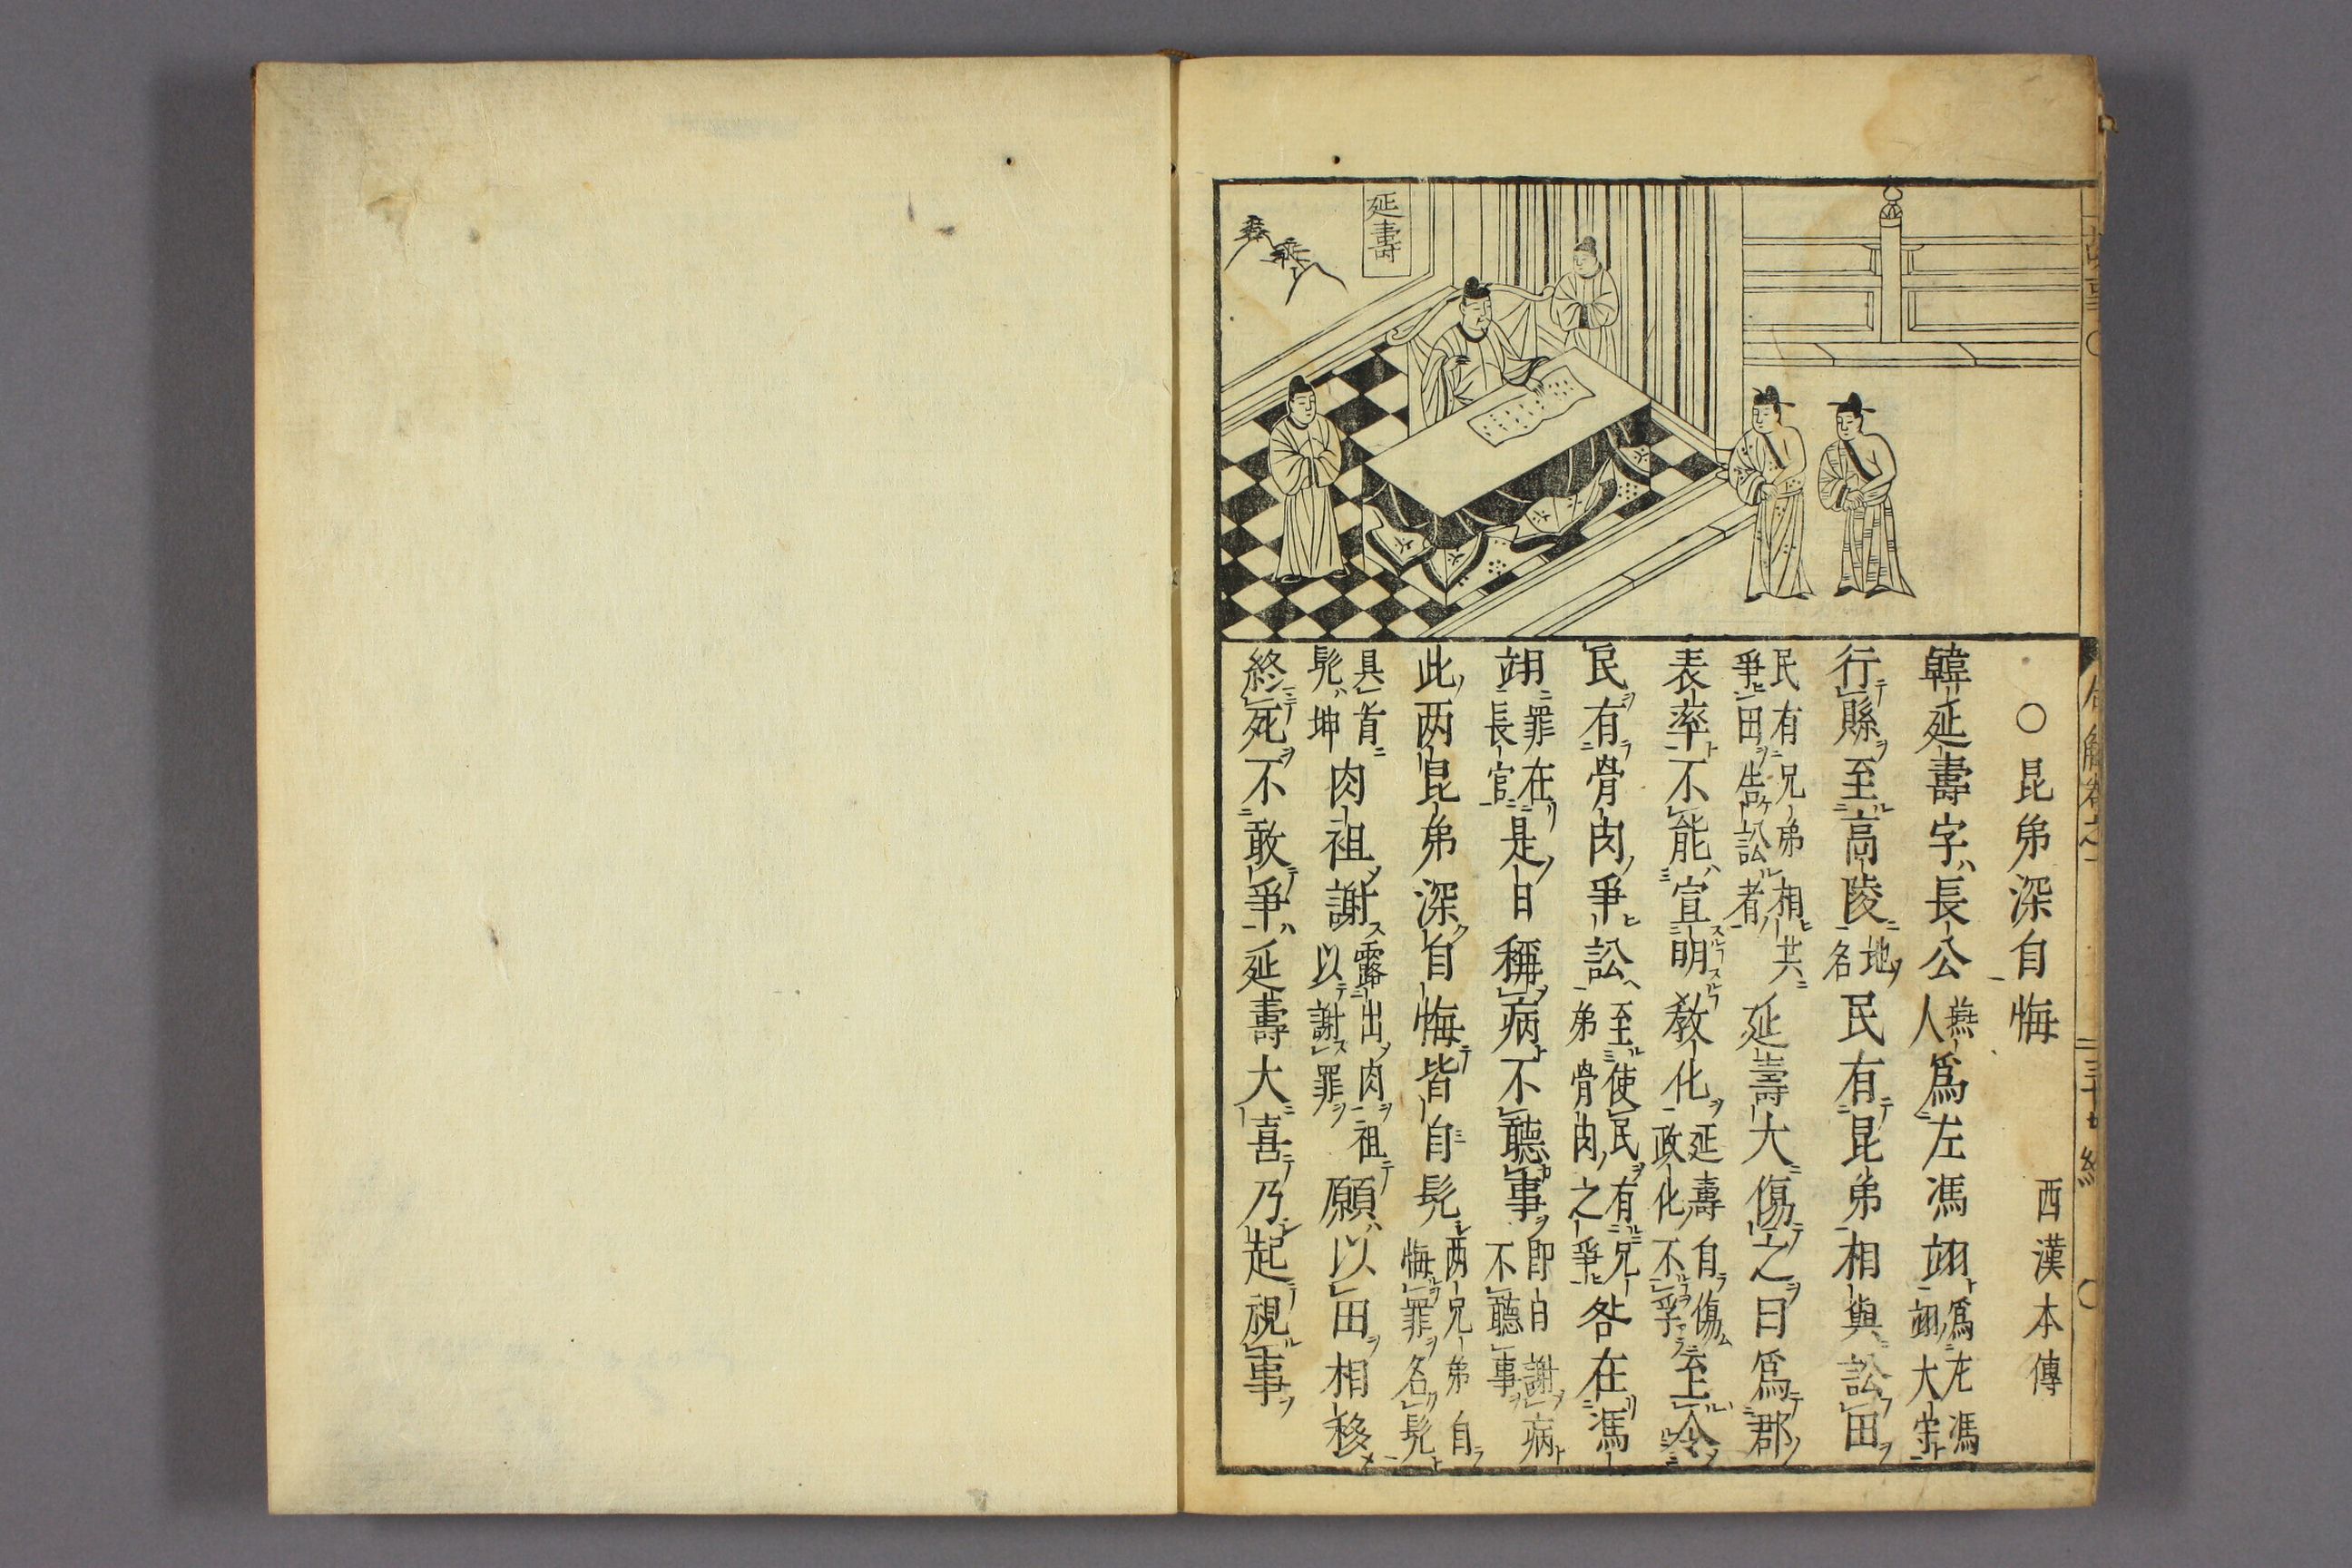 延壽
○昆弟深自悔 西漢本傳
韓延壽字長公燕人爲左馮翊爲左馮翊大守
行縣至高陵地名民有昆弟相與訟田
民有兄弟相共爭田告訟者延壽大傷之曰爲郡
表率不能宣明教化延壽自傷政化不孚至令
民有骨肉爭訟至使民有兄弟骨肉之爭咎在馮
翊罪在長官是日稱病不聽事即白謝病不聽事
此两昆弟深自悔皆自髡两兄弟自悔罪名髡
具首髡坤肉袒謝露出肉袒以謝罪願以田相移
終死不敢爭延壽大喜乃起視事